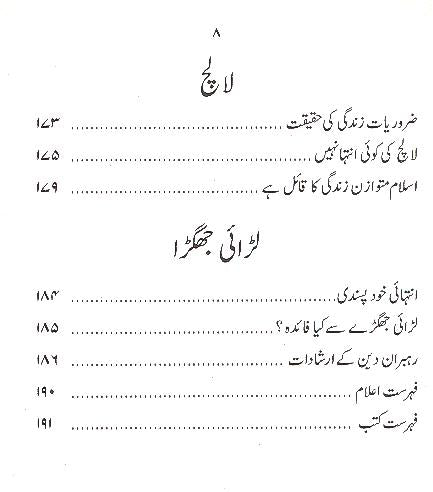 ۸
لالچ
ضروریات زندگی کی حقیقت ........................ ۱۷۳
لالچ کی کوئی انتہا نہیں ........................ ۱۷۵
اسلام متوازن زندگی کا قائل ہے ........................ ۱۷۹
لڑائی جھگڑا
انتہائی خود پسندی ........................ ۱۸۴
لڑائی جھگڑے سے کیا فائدہ ؟ ........................ ۱۸۵
رہبران دین کے ارشادات ........................ ۱۸۶
فہرست اعلام ........................ ۱۹۰
فہرست کتب ........................ ۱۹۱